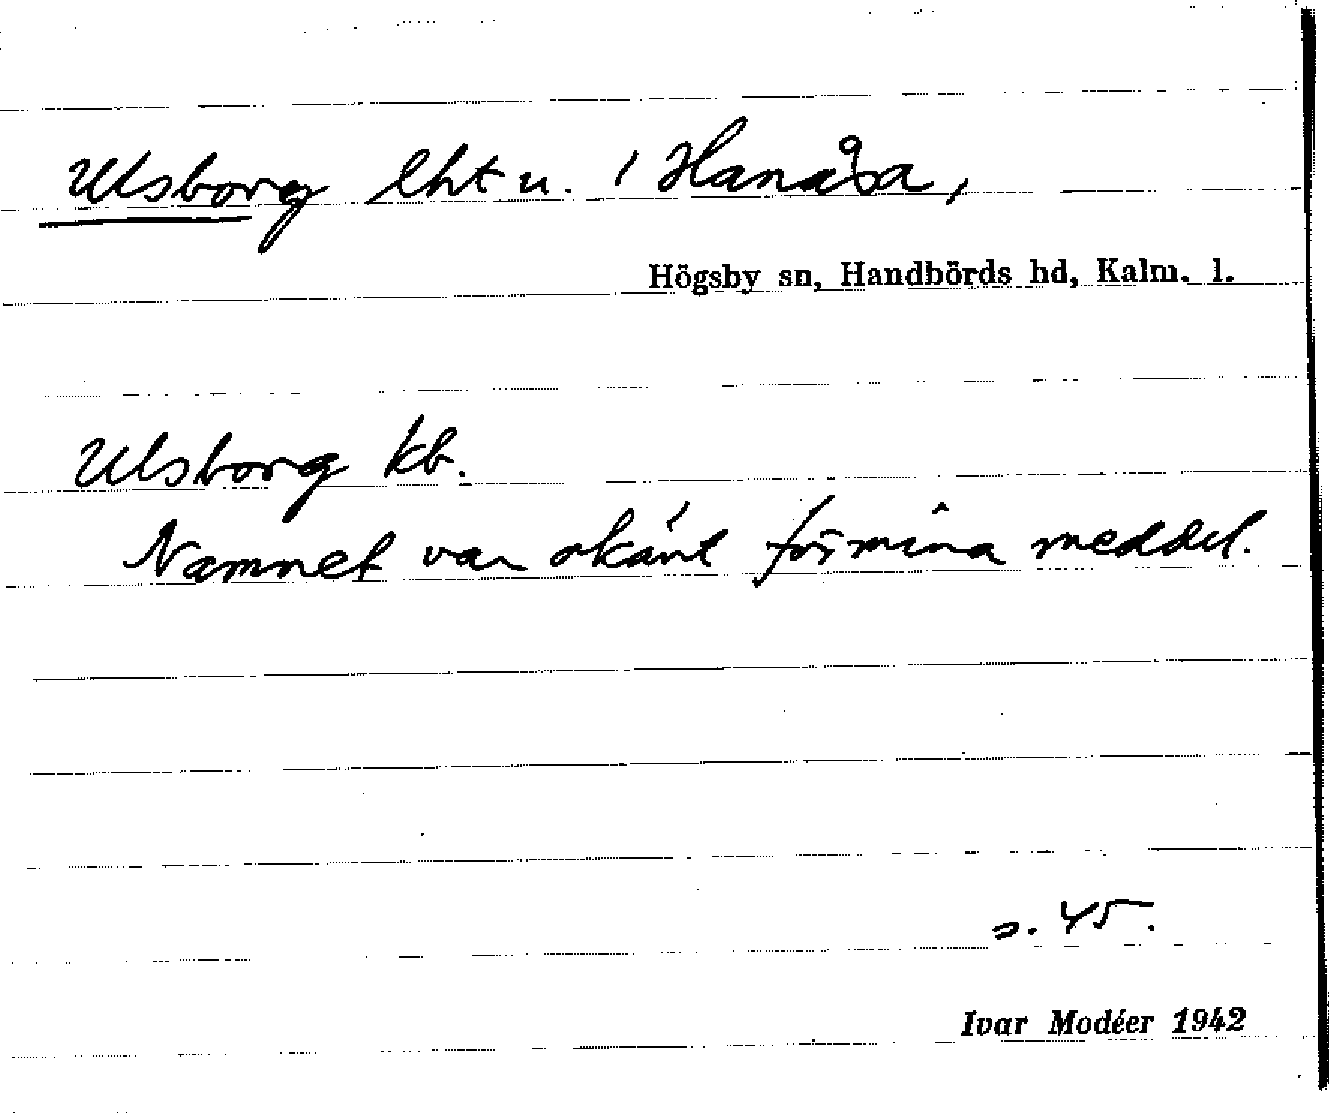 Ulsborg lht u. i Hanåsa,
Högsby sn, Handbörds hd, Kalm. l.
Ulsborg kb.
Namnet var okänt för mina meddel.
s. 45.
Ivar Modéer 1942